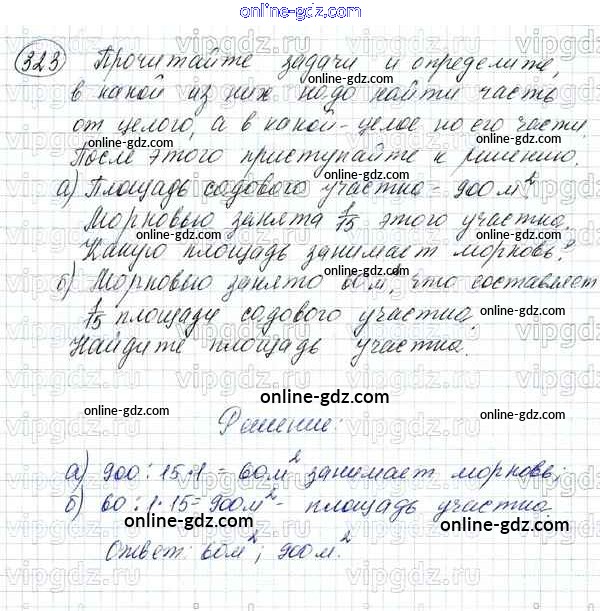 online-gdz.com
323 Прочитайте задачи и определите,
в какой из них надо найти часть
от целого, а в какой - целое по его части.
После этого приступайте к решению.
а) Площадь садового участка - 900 м².
Морковью занята 1/15 этого участка.
Какую площадь занимает морковь?
б) Морковью занято 60 м², что составляет
1/15 площади садового участка.
Найдите площадь участка.
online-gdz.com
Решение:
а) 900 : 15 · 1 = 60 м² занимает морковь;
б) 60 : 1 · 15 = 900 м² - площадь участка.
Ответ: 60 м²; 900 м².